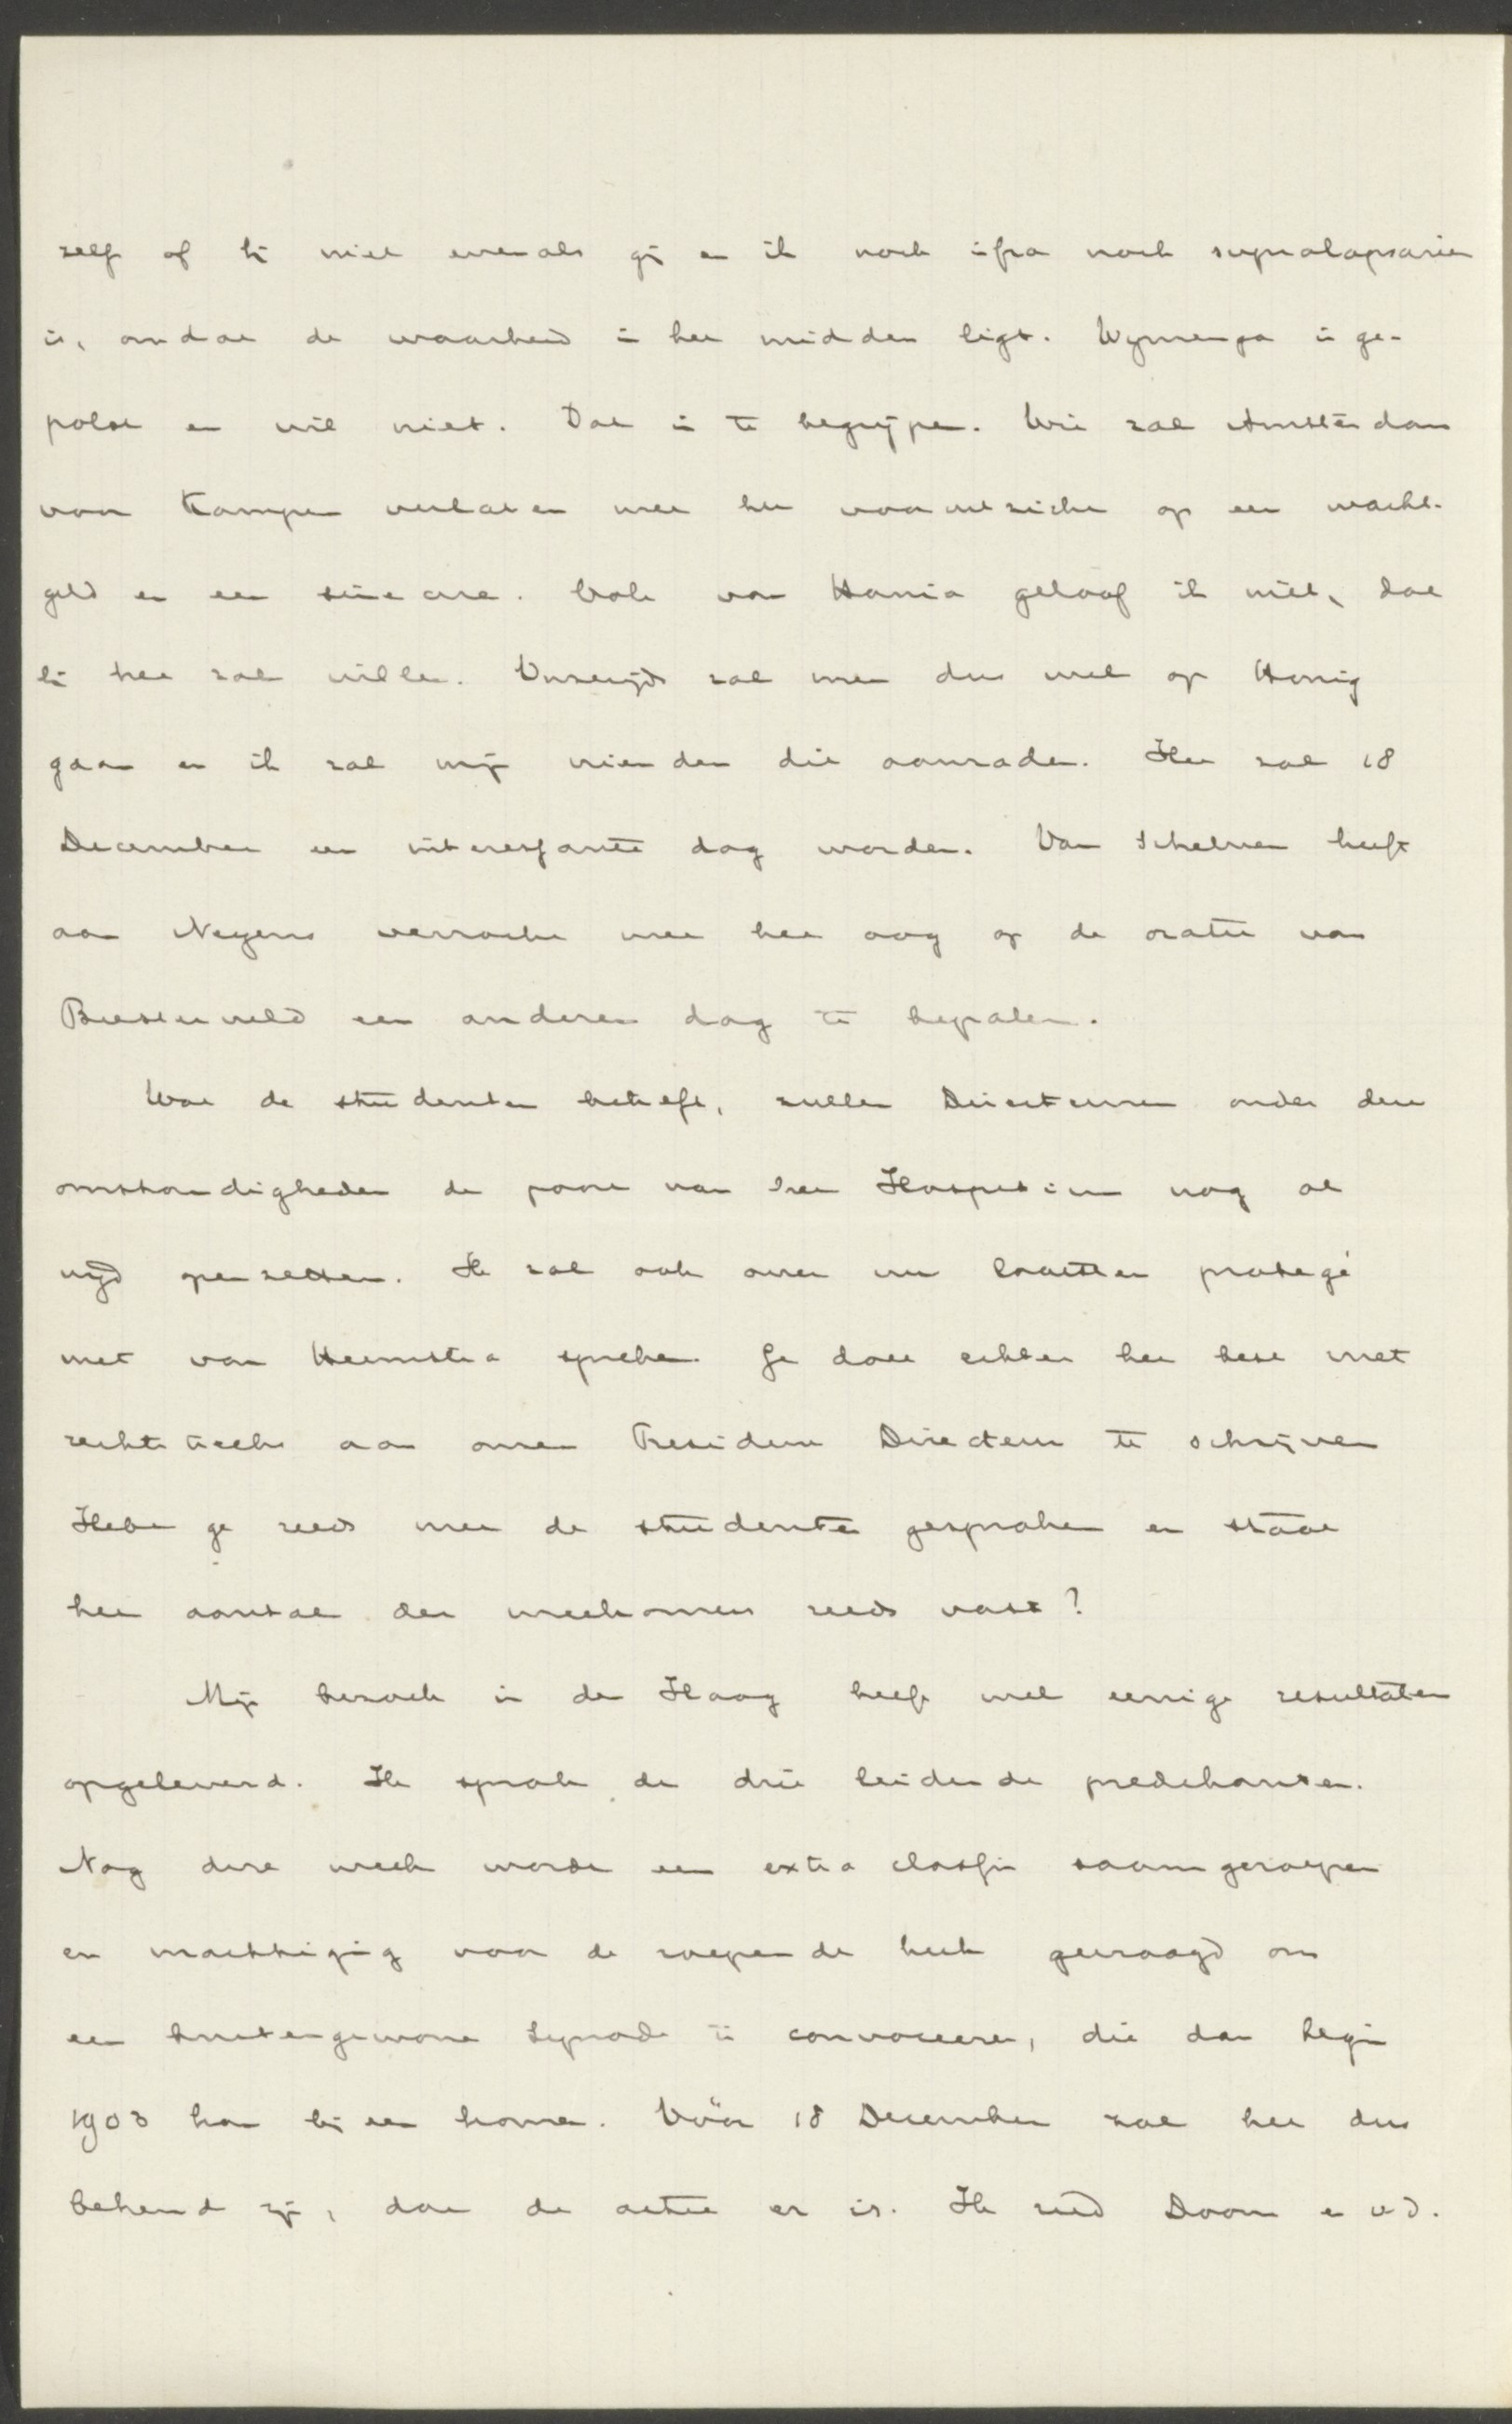 zelf of hij niet evenals gij en ik noch infra noch supralapsariër
is, omdat de waarheid in het midden ligt. Wymenga is ge-
polst en wil niet. Dat is te begrijpen. Wie zal Amsterdam
voor Kampen verlaten met het vooruitzicht op een wacht-
geld en een sinecure. Ook van Hania geloof ik niet, dat
hij het zal willen. Onzerzijds zal men dus wel op Honig
gaan en ik zal mijn vrienden die aanraden. Het zal 18
December een interessante dag worden. Van Schelven heeft
aan Noyens verzocht met het oog op de oratie van
Biesterveld een anderen dag te bepalen.
Wat de studenten betreft, zullen Directeuren onder deze
omstandigheden de poort van het Hospitium nog al
wijd openzetten. Ik zal ook over uw laatsten protegé
met van Heemstra spreken. Ge doet echter het best met
rechtstreeks aan onzen President Directeur te schrijven
Hebt ge reeds met de studenten gesproken en staat
het aantal der meekomers reeds vast?
Mijn bezoek in den Haag heeft wel eenige resultaten
opgeleverd. Ik sprak de drie leidende predikanten.
Nog deze week wordt een extra classis saamgeroepen
en machtiging voor de roepende kerk gevraagd om
een buitengewone Synode te convoceeren, die dan begin
1903 kan bijeen komen. Vóór 18 December zal het dus
bekend zijn, dat de actie er is. Ik ried Doorn